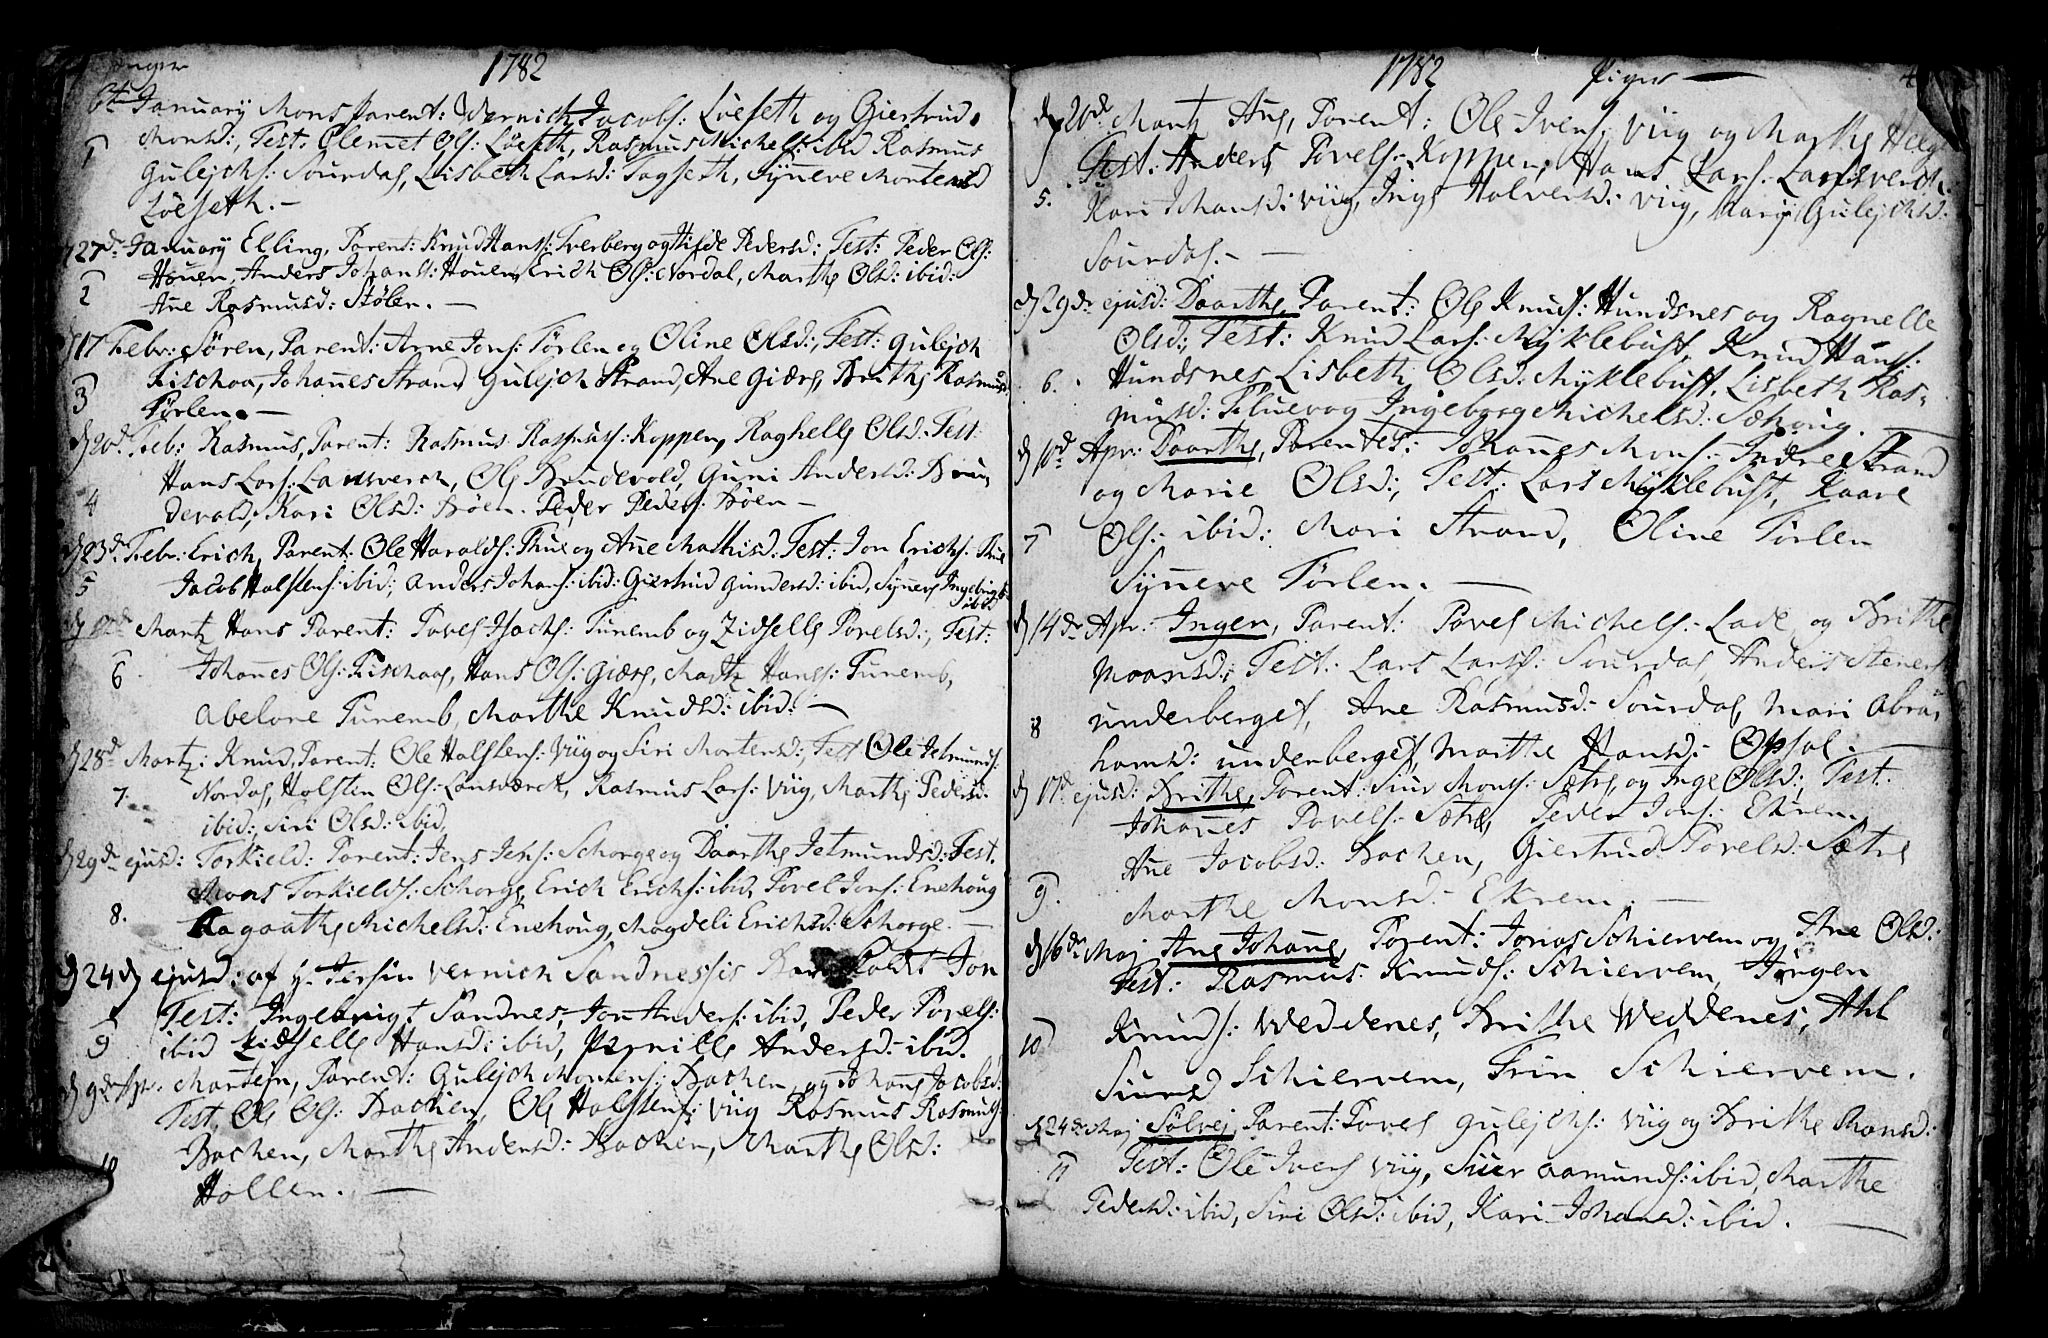 1782
6te January Mons Parent: Wernich Jacobs: Löeseth og Giertrud
Monsd:, Test: Clemet Ols: Löeseth, Rasmus Michels: ibid Rasmus
1
Gulejchs: Sourdal, Lisbeth Larsd: Tagseth, Syñeve Mortensd
Löeseth. -
27d: January Elling, Parent: Knud Hans: Tverberg og Hilde Pedersd: Test: Peder Ols:
Houen, Anders Johans: Houen, Erich Ols: Nordal, Marthe Olsd: ibid:
2
Ane Rasmusd: Stölen. -
17 Febr: Sören, Parent: Arne Jons: Törlen og Oline Olsd:, Test: Gulejch
Fischaa, Johañes Strand Gulejch Strand, Ane Giære, Brithe Rasmusd:
3
Törlen. -
d 20d Feb: Rasmus, Parent: Rasmus Rasmus: Koppen, Raghelle Olsd: Test
Hans Lars: Landsverch, Ole Brudevold, Guni Andersd: Bruu
4
devold, Kari Olsd: Böen. Peder Peders: Böen -
d 23d Febr: Erich, Parent: Ole Haralds: Thue og Ane Mathisd: Test: Jon Erichs: Thue
5
Jacob Halstens: ibid:, Anders Johans: ibid: Giertrud Gundersd: ibid, Syñeve Ingebrigts
ibid
Martz Hans Parent: Povel Isachs: Tunemb og Zidselle Povelsd:, Test:
6
Johañes Ols: Fischaae, Hans Ols: Giære, Madtz Hans: Tunemb,
Abelone Tunemb, Marthe Knudsd: ibid: -
d 28d Martz: Knud, Parent: Ole Halstens: Viig og Siri Mortensd:, Test Ole Jetmunds:
7.
Nordal, Halsten Ols: Lansværck, Rasmus Lars: Viig, Marthe Pedersd:
ibid:, Siri Olsd: ibid,
d 29de ejusd: Torkield: Parent: Jens Jens: Schorge og Daarthe Jetmundsd: Test.
Mons Torkields: Schorge, Erich Erichs: ibid, Povel Jons: Enehoug
8.
Aagaathe Michelsd: Enehoug, Magdeli Erichsd: Schorge. -
d 24d ejusd: af H. Jersin Vernich Sandnessis Jon
Test: Ingebrigt Sandnes, Jon Anders: ibid, Peder Povels:
9
ibid Zidselle Hansd: ibid, Pernille Andersd: ibid.
d 9de Apr. Marten, Parent: Gulejch Mortens: Bachen, og Johañe Jacobsd:
Test. Ole Ols: Bachen, Ole Halstens: Viig Rasmus Rasmus:
Bachen, Marthe Andersd: Bachen, Marthe Olsd:
10
Hollen. -
1782 Piger -
d 20d Martz Ane, Parent: Ole Ivers: Viig og Marthe Helge
Test: Anders Povels: Koppen, Hans Lars: Landsverch
5.
Kari Johansd: Viig, Inge Halversd: Viig, Mari Gulejchsd:
Sourdal. -
d 29de ejusd: Daarthe, Parent: Ole Knuds: Hundsnes og Ragnelle
Olsd:, Test: Knud Lars: Myklebust, Knud Hans:
6.
Hundsnes Lisbeth Olsd: Myklebust, Lisbeth Ras-
musd: Flue og Ingeborg Michelsd: Sæhoug. -
d 10d Apr: Daarthe, Parentes: Johañes Mons: Indre Strand
og Marie Olsd:, Test: Lars Myklebust, Kaare
7
Ols: ibid: Mari Strand, Oline Törlen
Syñeve Törlen. -
d 14de Apr: Inger, Parent: Povel Michels: Lade og Brithe
Moonsd:, Test: Lars Lars: Sourdal Anders Steners
8
underberget, Ane Rasmusd: Sourdal, Mari Abra
hamsd: underberget, Marthe Hansd: Opsal. -
d 17d ejusd: Brithe, Parent: Siur Mons: Sætre, og Inge Olsd:, Test:
Johañes Povels: Sætre, Peder Jons: Ekrem,
Ane Jacobsd: Bachen, Giertrud Povelsd: Sætre
9.
Marthe Monsd: Ekrem. -
d 16de Maj Ane Johañe, Parent: Jonas Schiervem og Ane Olsd:
Test: Rasmus: Knuds: Schiervem, Jörgen
10
Knuds: Weddenes, Brithe Weddenes, Ahl
Siurd Schiervem, Trin Schiervem.
d 24de Maj Sölvej Parent: Povel Gulejchs: Viig og Brithe Monsd:
11
Test: Ole Ivers Viig, Siver Aamunds: ibid, Marthe
Pedersd: ibid, Siri Olsd: ibid, Kari Johansd: ibid. -